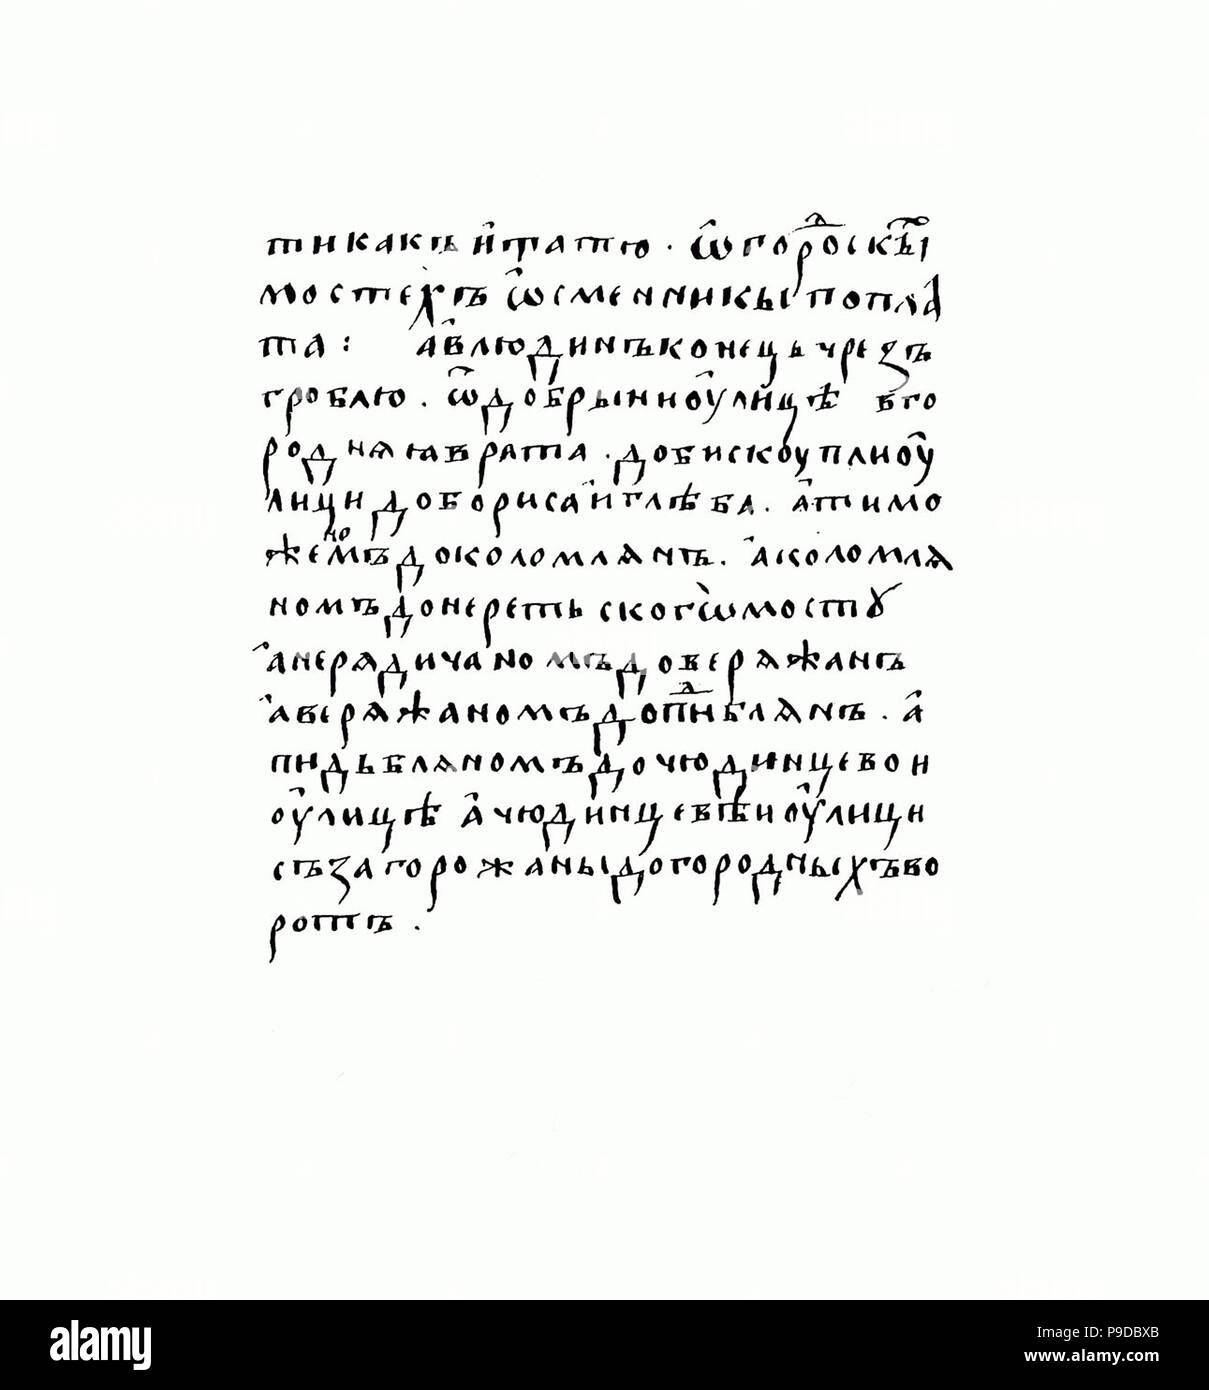 тикакъ и татю · ѿ горѡⷣскы
мостехъ ѡсменникы попла
та : авлюдинъ конець чрезъ
гроблю . ѿ добрыни оулицѣ в го
родняю врата · до пискоупли оу
лици до бориса и глѣба . а тимо
жеⷩⷪмъ до коломлянъ . а коломля
номъ до нереть ского мостȣ
а нерядичаномъ до веряжанъ
а веряжаномъ до пиⷣблянъ . а
пидьбляномъ до чюдинцевои
оулицѣ а чюдинцевѣи оулици
съ загорожаны до городныхъ во
ротъ .
alamy
alamy
Image ID: P9DBXB
www.alamy.com